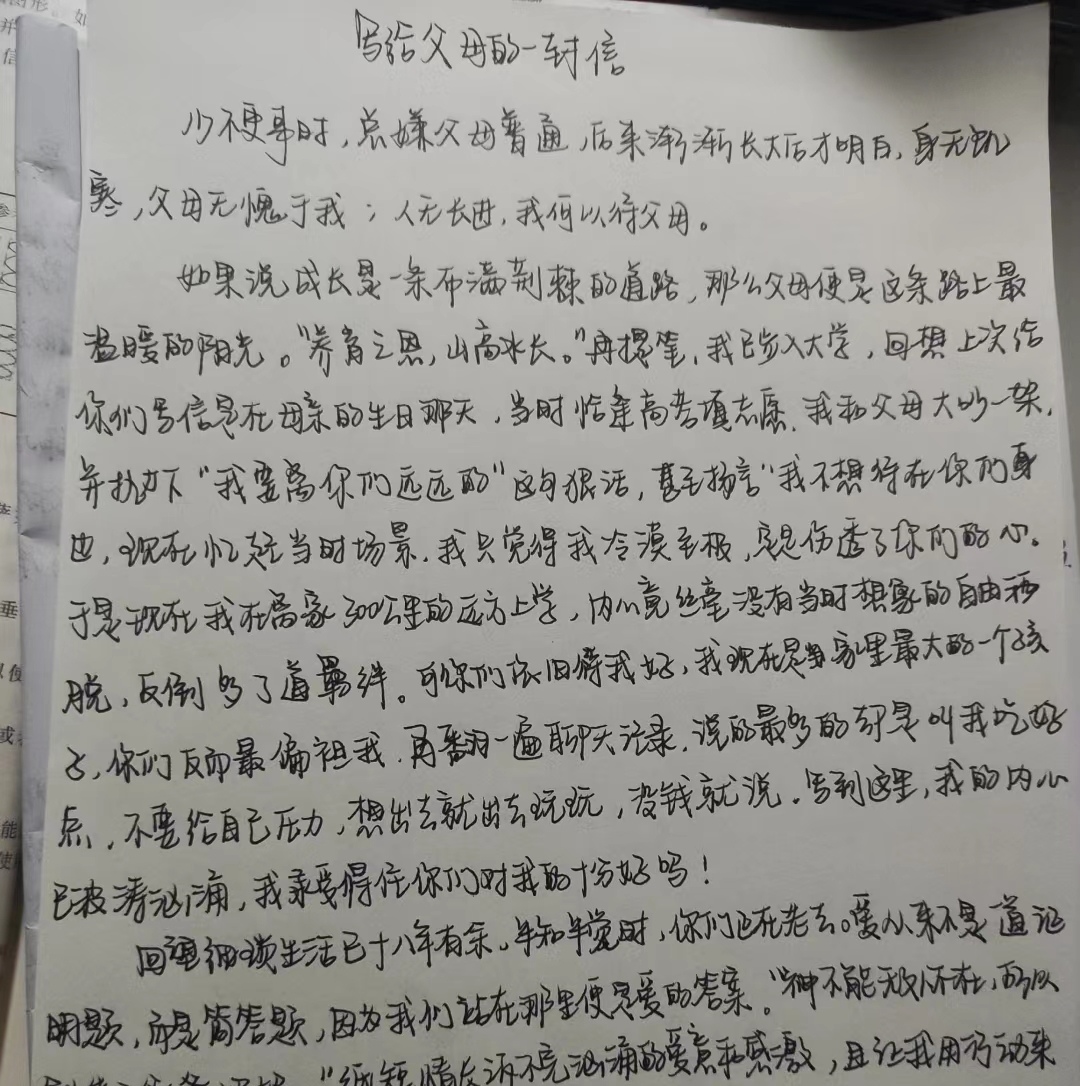 写给父母的一封信
少不更事时，总嫌父母普通，后来渐渐长大后才明白，身无饥
寒，父母无愧于我；人无长进，我何以待父母。
如果说成长是一条布满荆棘的道路，那么父母便是这条路上最
温暖的阳光。“养育之恩，山高水长。”再提笔，我已步入大学，回想上次给
你们写信是在母亲的生日那天，当时恰逢高考填志愿，我和父母大吵一架，
并扔下“我要离你们远远的”这句狠话，甚至扬言“我不想待在你们身
边，现在忆起当时场景，我只觉得我冷漠至极，定是伤透了你们的心。
于是现在我在离家300公里的远方上学，内心竟丝毫没有当时想象的自由洒
脱，反倒多了道羁绊。可你们依旧待我好，我现在是家里最大的一个孩
子，你们反而最偏袒我，再翻一遍聊天记录，说的最多的却是叫我吃好
点，不要给自己压力，想出去就出去玩玩，没钱就说。写到这里，我的内心
已被清汹涌，我承受得住你们对我的十份好吗！
回望细琐生活已十八年有余，半知半觉时，你们正在老去。爱从来不是道证
明题，而是简答题，因为我们站在那里便是爱的答案。“神不能无所不在，所以
“纸短情长诉不完汹涌的爱意和感激，且让我用行动来